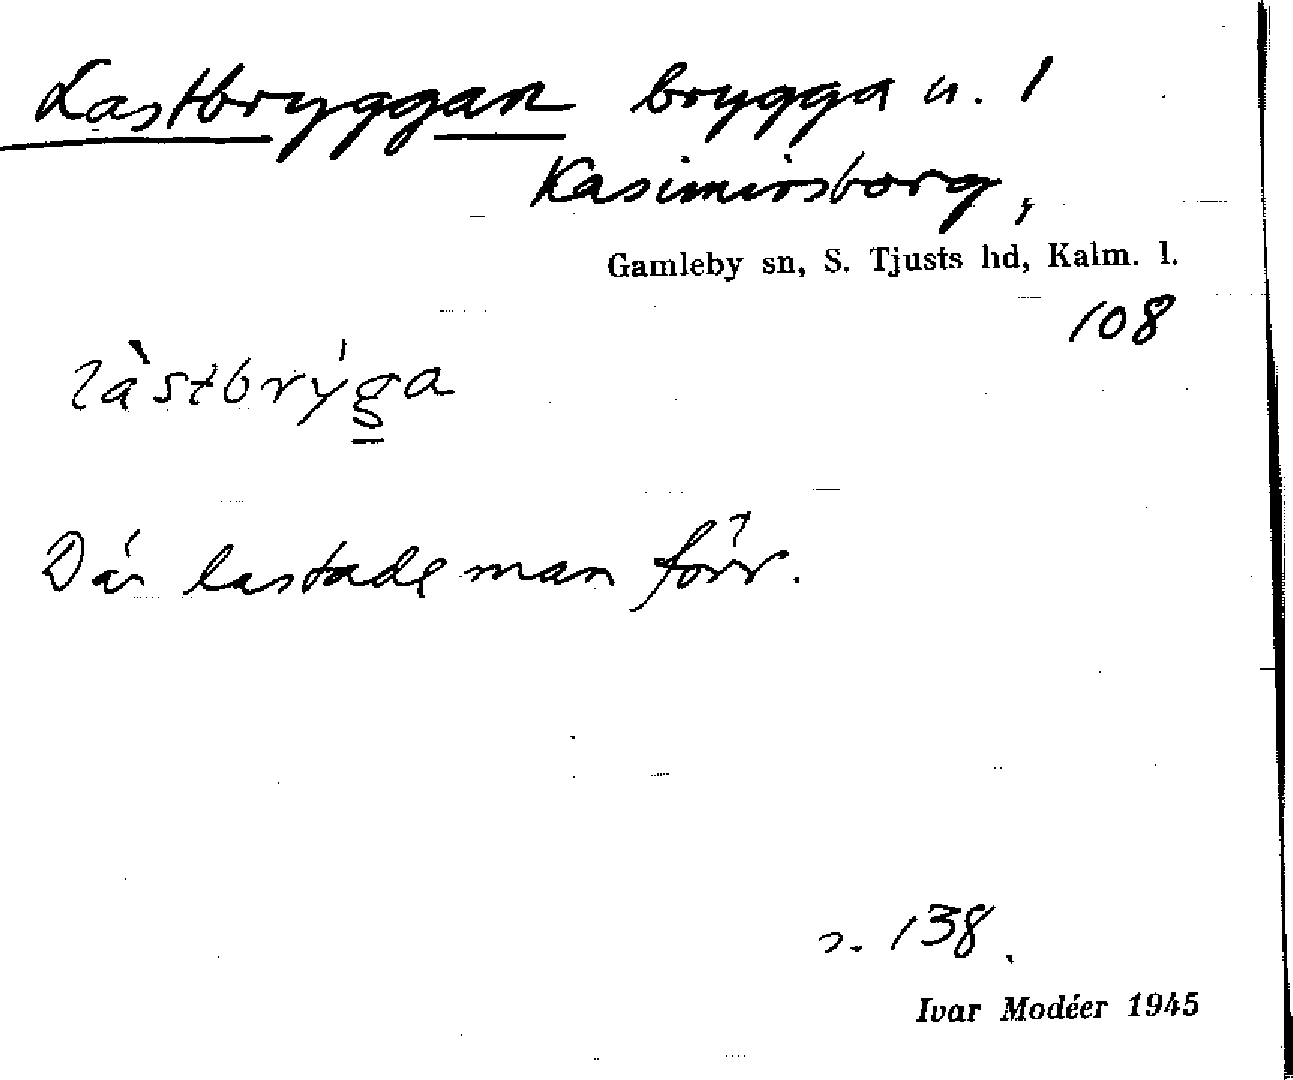 Lastbryggan brygga u. 1
Kasimirsborg,
Gamleby sn, S. Tjusts hd, Kalm. l.
108
làstbrýga
Där lastade man förr.
s. 138.
Ivar Modéer 1945